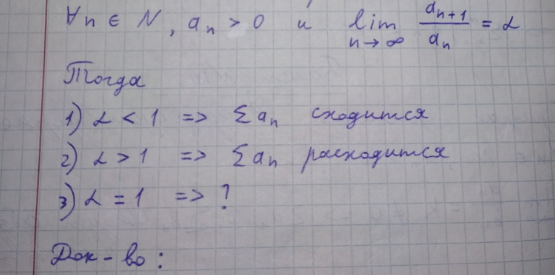 ∀n ∈ N, aₙ > 0 и lim n→∞ aₙ₊₁/aₙ = α
Тогда
1) α < 1 => Σaₙ сходится
2) α > 1 => Σaₙ расходится
3) α = 1 => ?
Док-во: